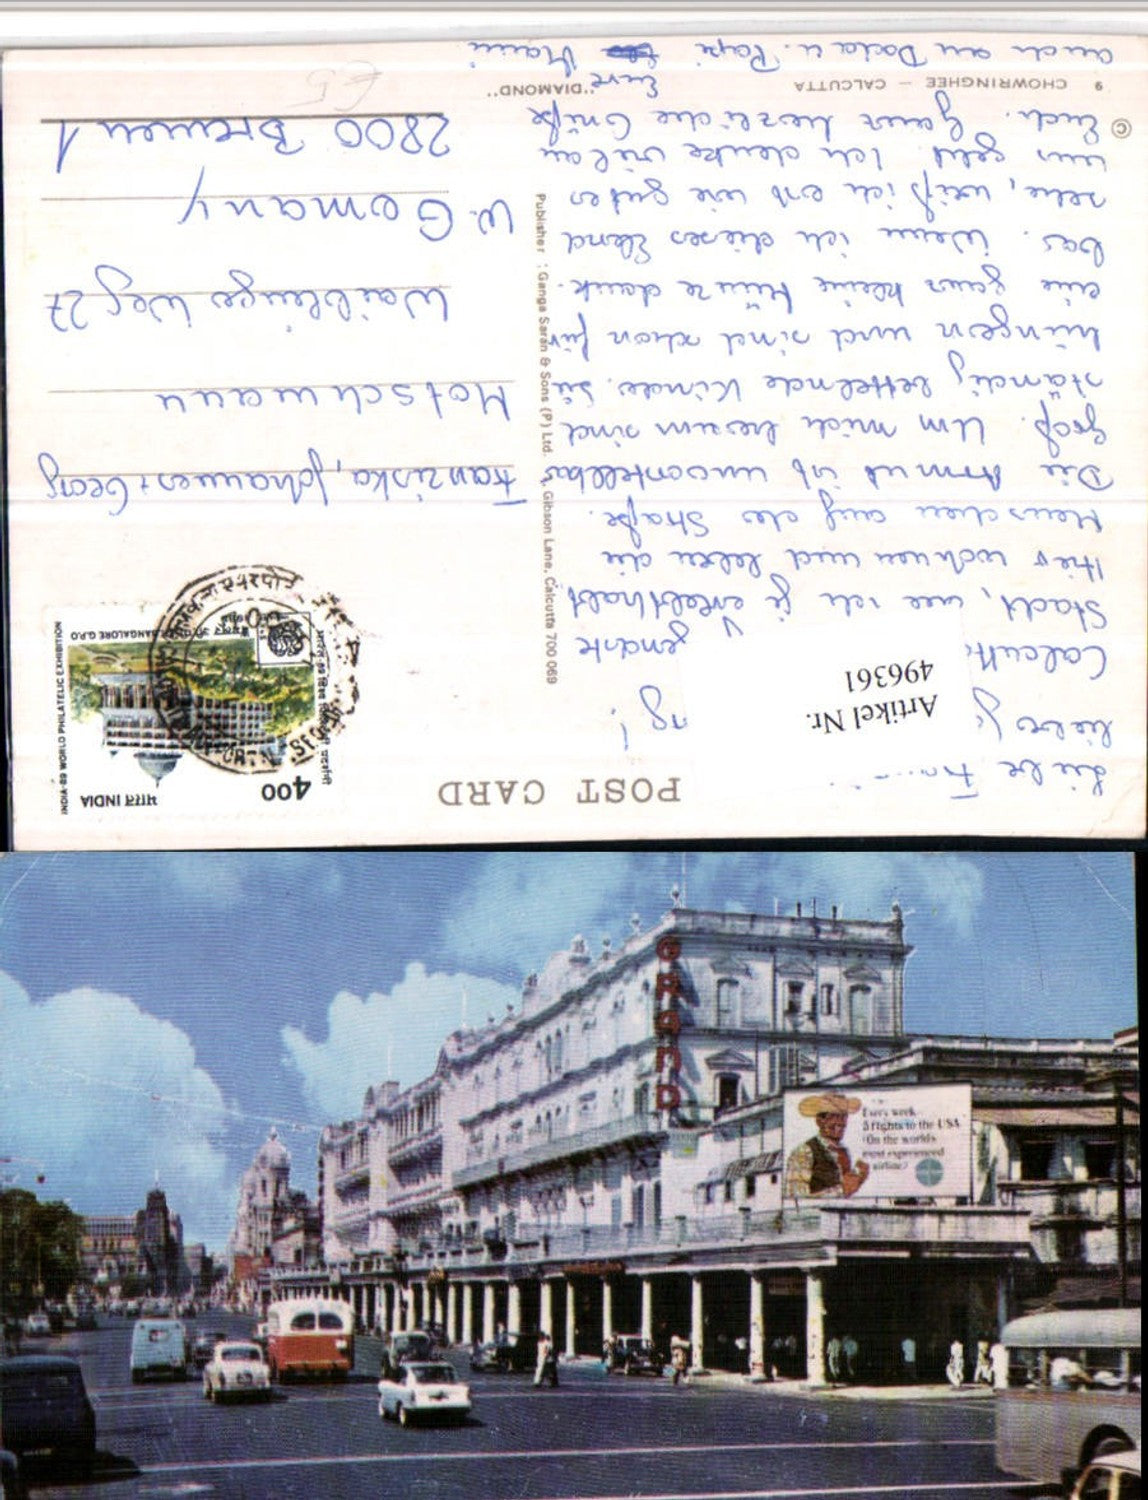 POST CARD
Artikel Nr.
496361
Liebe
lieber
ng!
Calcutta
genannte
Stadt, wie ich je erlebt habe
Hier wohnen und leben die
Menschen auf der Straße.
Die Armut ist unvorstellbar
groß. Um mich herum sind
ständig bettelnde Kinder. Sie
hungern und sind schon für
eine ganz kleine Münze dank-
bar. Wenn ich dieses Elend
sehe, weiß ich erst wie gut es
uns geht. Ich denke viel an
Euch. Ganz herzliche Grüße
Eure Mami
auch an Doda u. Papi
© 9 CHOWRINGHEE – CALCUTTA "DIAMOND"
Publisher : Ganga Saran & Sons (P) Ltd. Gibson Lane, Calcutta 700 069
Franziska, Johannes + Georg
Motschmann
Waiblinger Weg 27
W. Germany
2800 Bremen 1
400
भारत INDIA
INDIA-89 WORLD PHILATELIC EXHIBITION
BANGALORE G.P.O.
GRAND
Every week
5 flights to the USA
On the world's
most experienced
airline